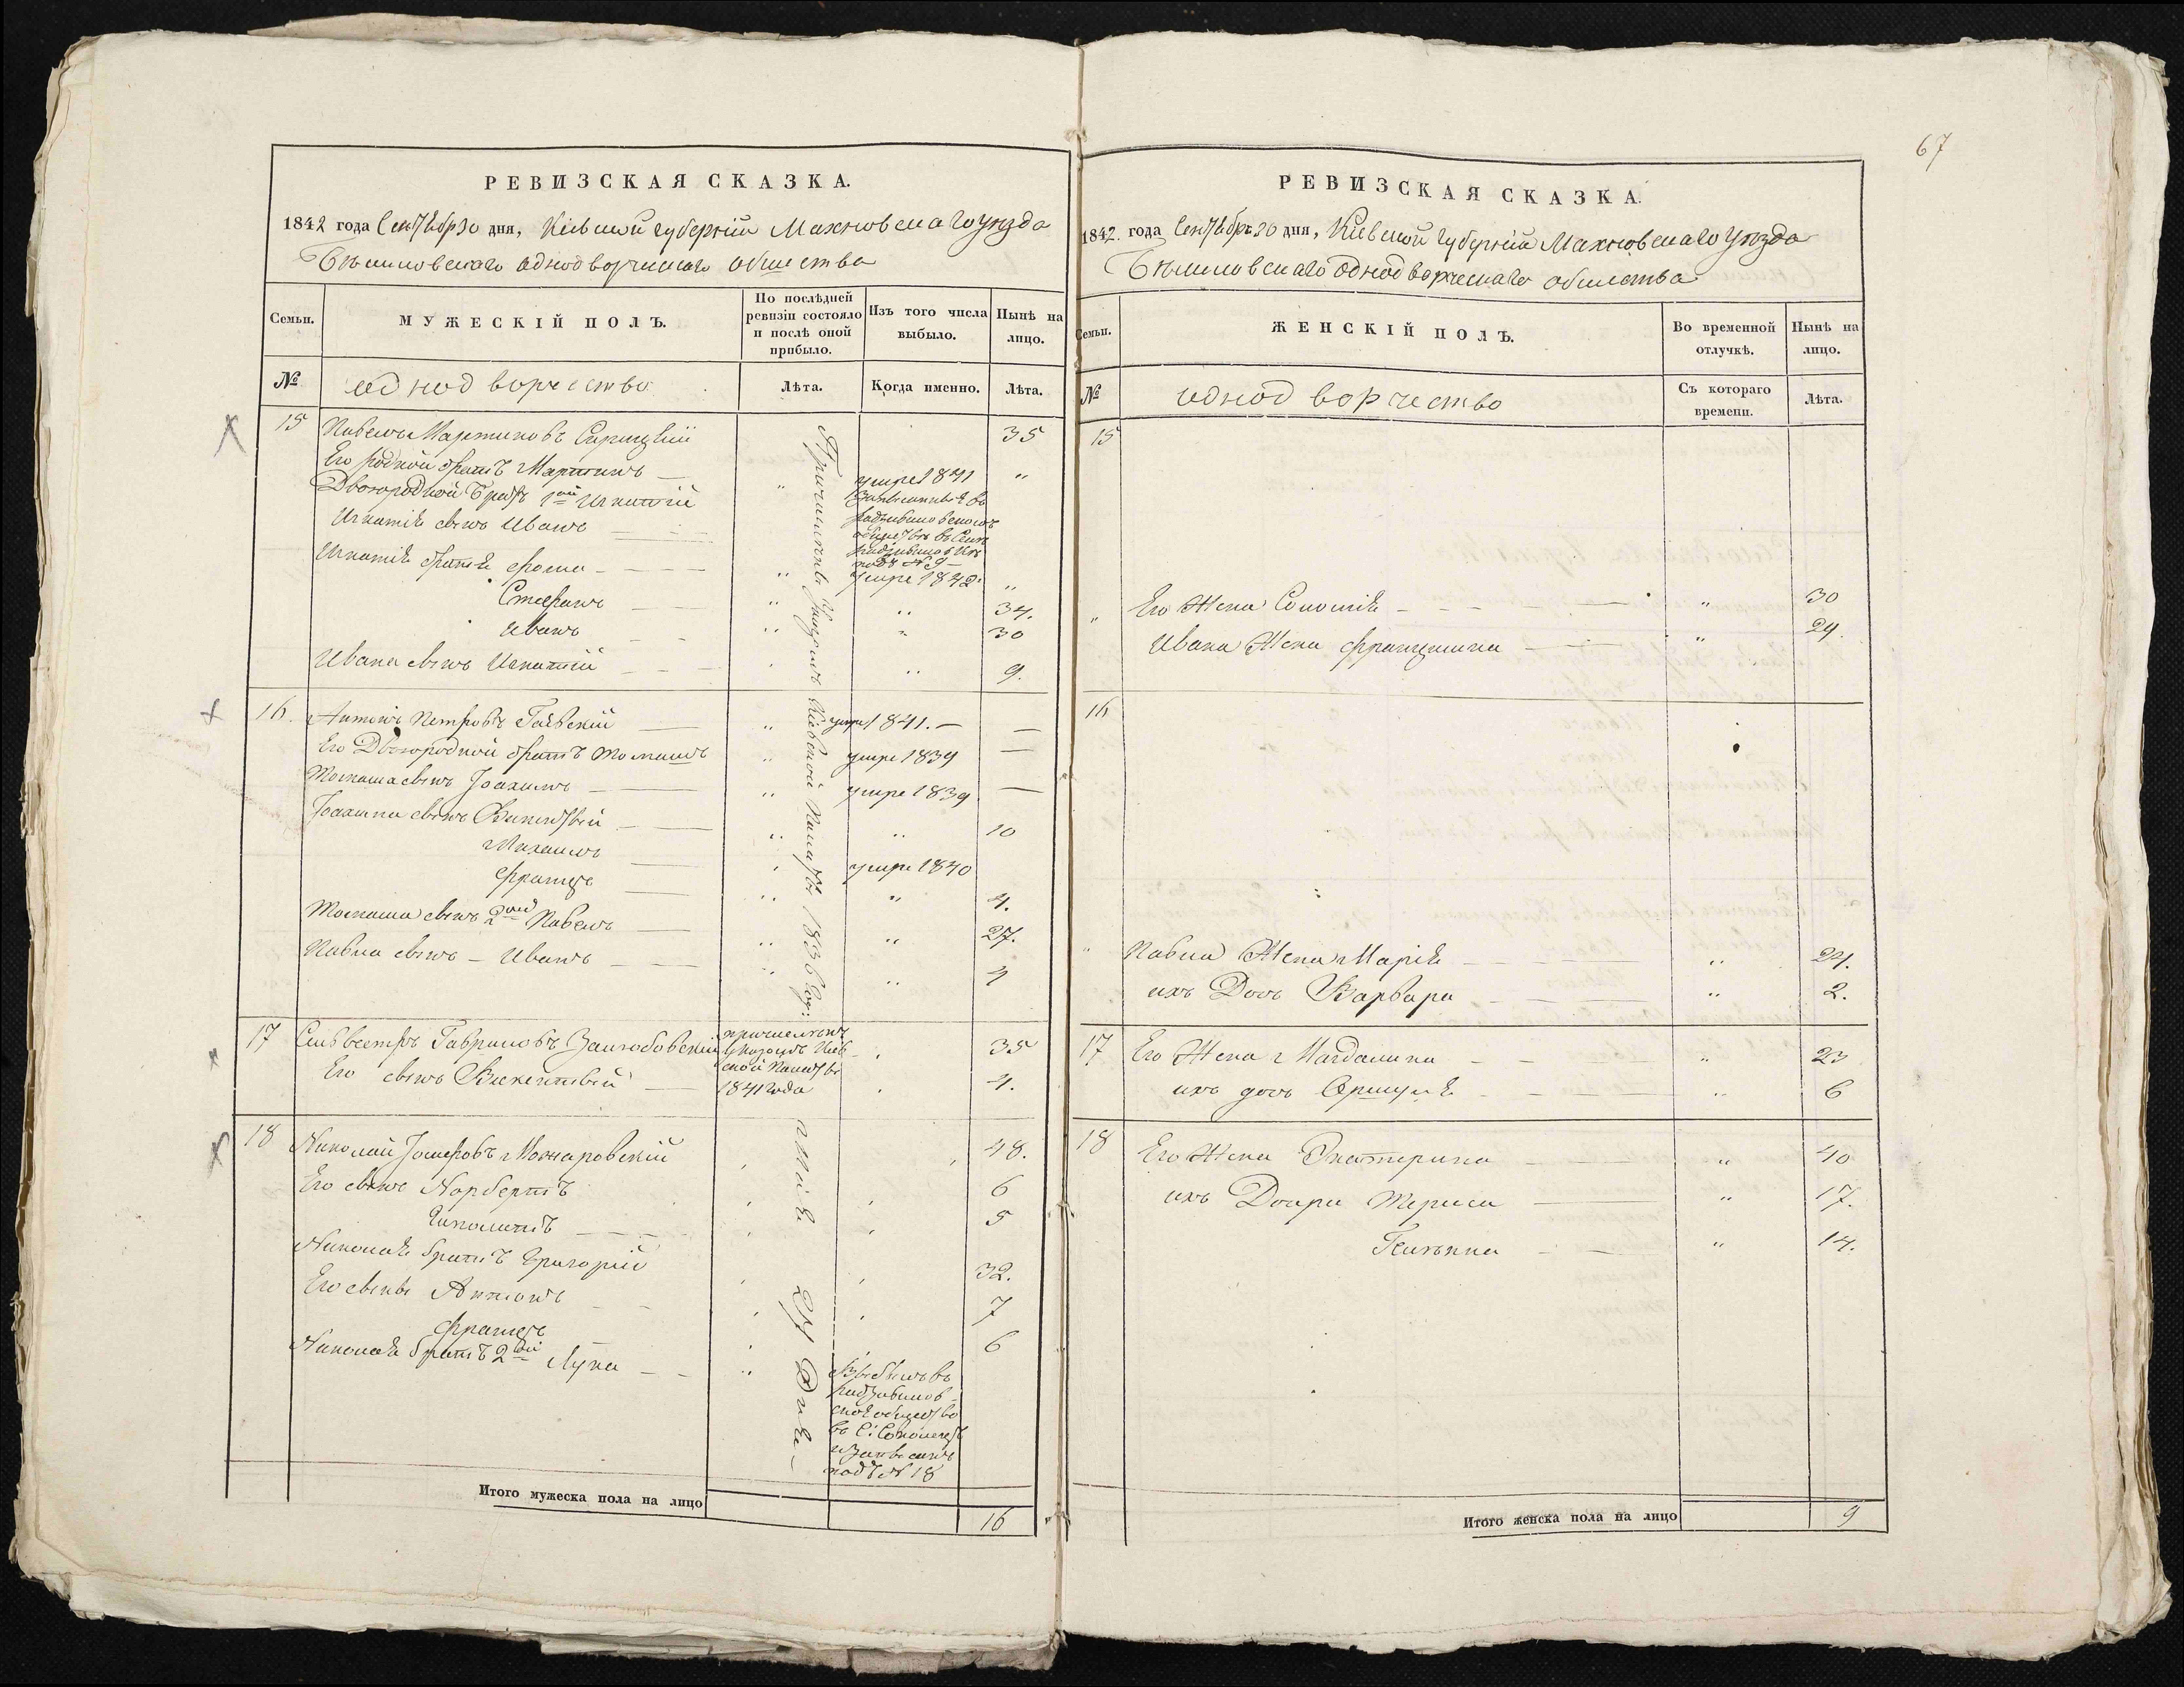 67
РЕВИЗСКАЯ СКАЗКА.
1842 года Сентябр 30 дня, Кіевской губерніи Махновскаго уѣзда
Бѣлиловскаго однодворческаго общества
Семьи. МУЖЕСКІЙ ПОЛЪ. По послѣдней ревизіи состояло и послѣ оной прибыло. Изъ того числа выбыло. Нынѣ на лицо.
№ однодворчество Лѣта. Когда именно. Лѣта.
15 Павелъ Мартиновъ 35
Его родной братъ Мартинъ умре 1841 "
Двоюродной братъ 1ый Игнатій
Игнатія сынъ Иванъ
Игнатія братья Фома умре 1842 "
Стефанъ " " 34.
Иванъ " " 30
Ивана сынъ Игнатій " 9.
16. Антонъ Петровъ Гаевскій " умре 1841. —
Его Двоюродной братъ Томашъ " умре 1839 —
Томаша сынъ Іоахимъ " умре 1839 —
Іоахима сынъ Викентій " " 10
Михаилъ умре 1840
Францъ " " 4.
Томаша сынъ 2ой Павелъ " " 27.
Павла сынъ — Иванъ " " 4
Причислены Указомъ Кіевской Палаты 1836 год:
17 Сильвестръ Гавриловъ 35
причисленъ указомъ Кіевской Палаты 1841 года
Его сынъ Викентій 4.
18 Николай Іосифовъ 48.
Его сынъ Норбертъ 6
Иполитъ 5
Николая братъ Григорій 32.
Его сыны Антонъ 7
Францъ 6
Николая братъ 2ой Лука "
въ С:
подъ № 18
Итого мужеска пола на лицо 16
РЕВИЗСКАЯ СКАЗКА.
1842. года Сентябр: 30 дня, Кіевской губерніи Махновскаго уѣзда
Бѣлиловскаго однодворческаго общества
Семьи. ЖЕНСКІЙ ПОЛЪ. Во временной отлучкѣ. Нынѣ на лицо.
№ однодворчество Съ котораго времени. Лѣта.
15
" Его Жена Соломія " 30
Ивана Жена Францишка " 24.
16
" Павла Жена Марія " 24.
ихъ Дочь Варвара " 2.
17 Его Жена Магдалина " 23
ихъ дочь Оршуля " 6
18 Его Жена Екатерина " 40
ихъ Дочери Тереса " 17.
" 14.
Итого женска пола на лицо 9